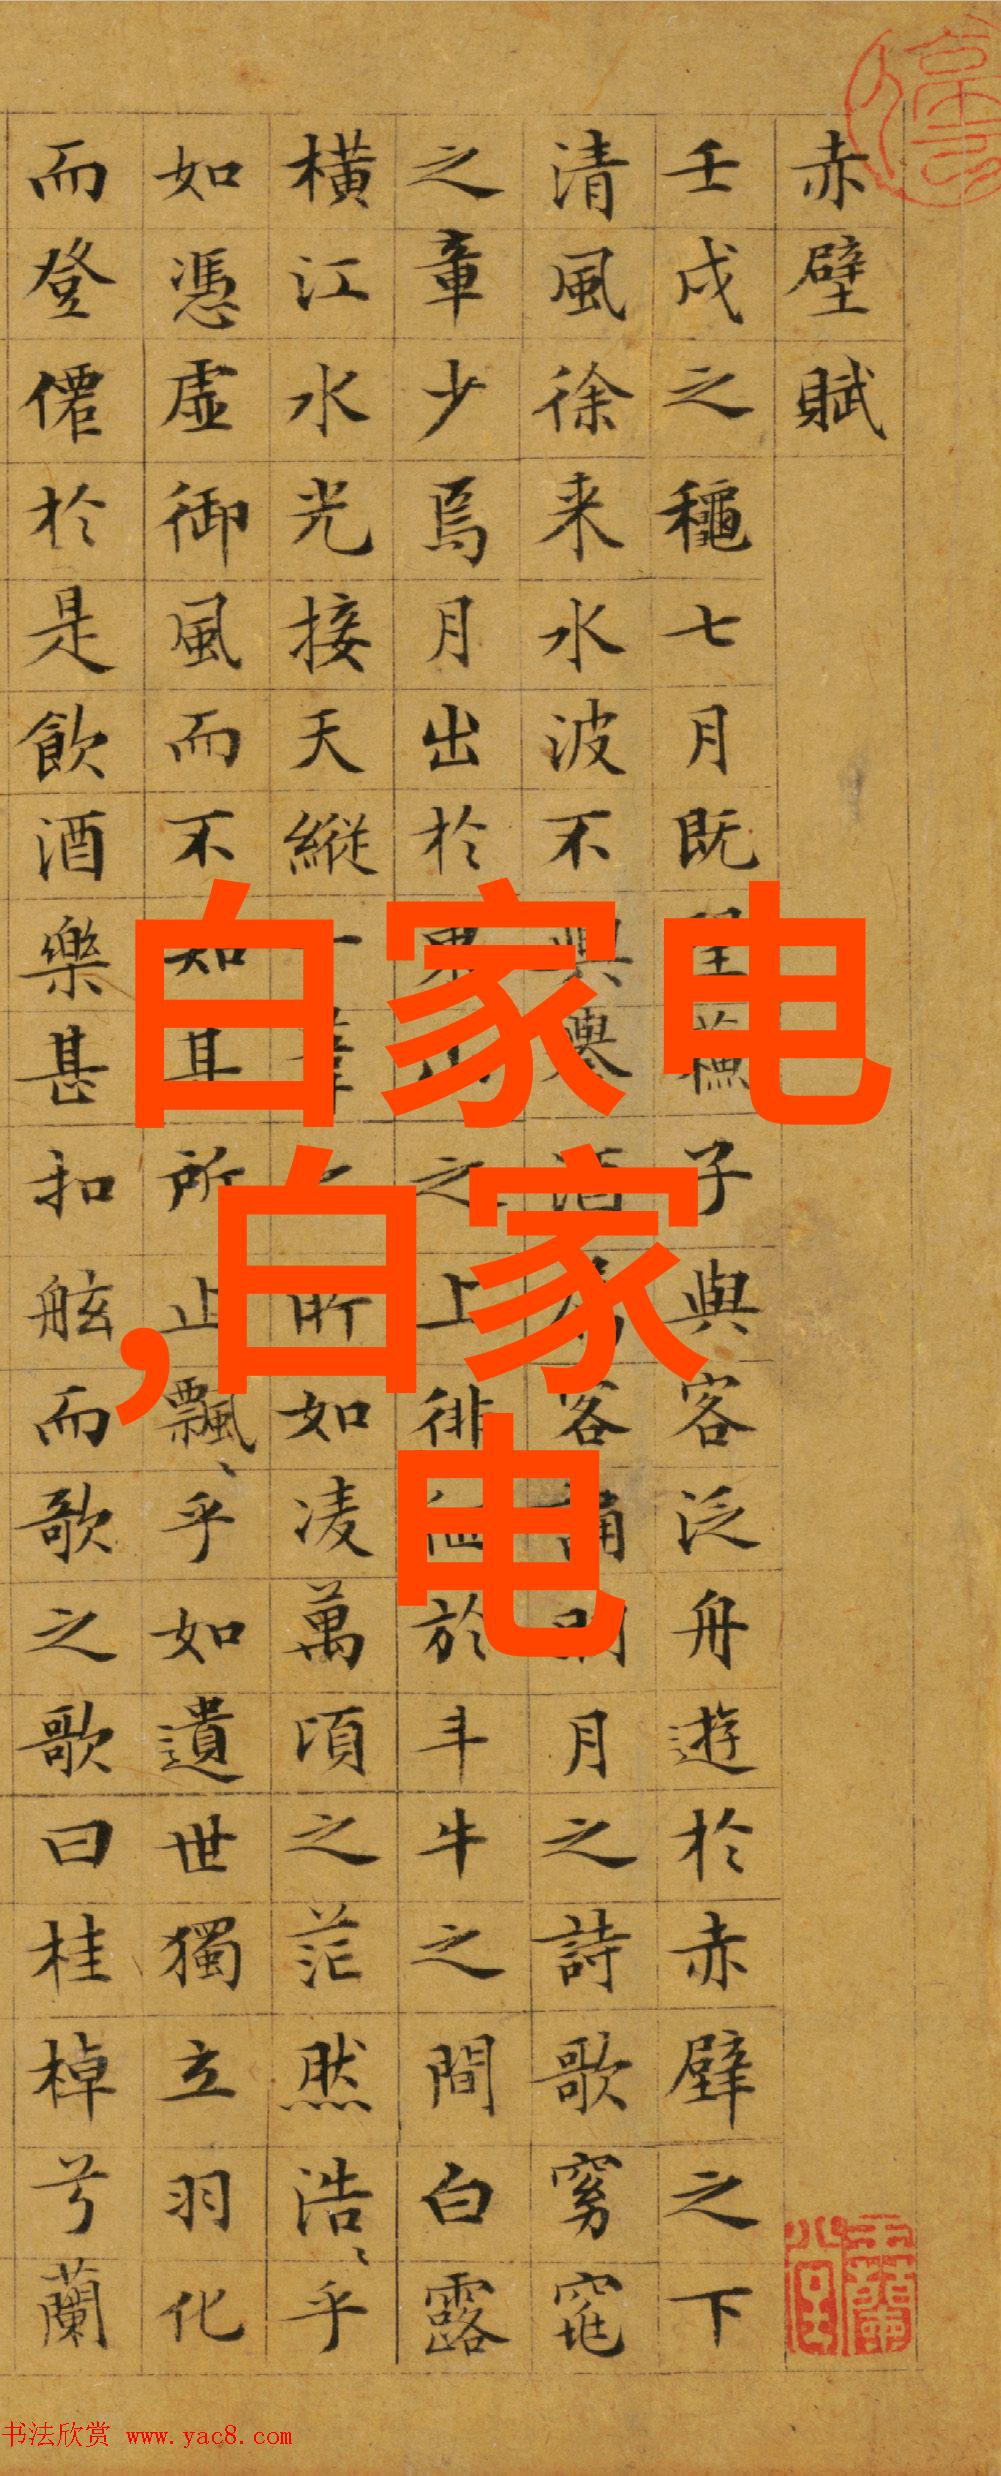 赤壁賦
壬戌之龝七月既望蘓子與客泛舟遊於赤壁之下
清風徐来水波不興舉酒屬客誦明月之詩歌窈窕
之章少焉月出於東山之上徘徊於斗牛之間白露
横江水光接天縱一葦之所如凌萬頃之茫然浩〻乎
如憑虚御風而不知其所止飄〻乎如遺世獨立羽化
而登僊於是飲酒樂甚扣舷而歌之歌曰桂棹兮蘭
白家电
,白家
电
书法欣赏 www.yac8.com